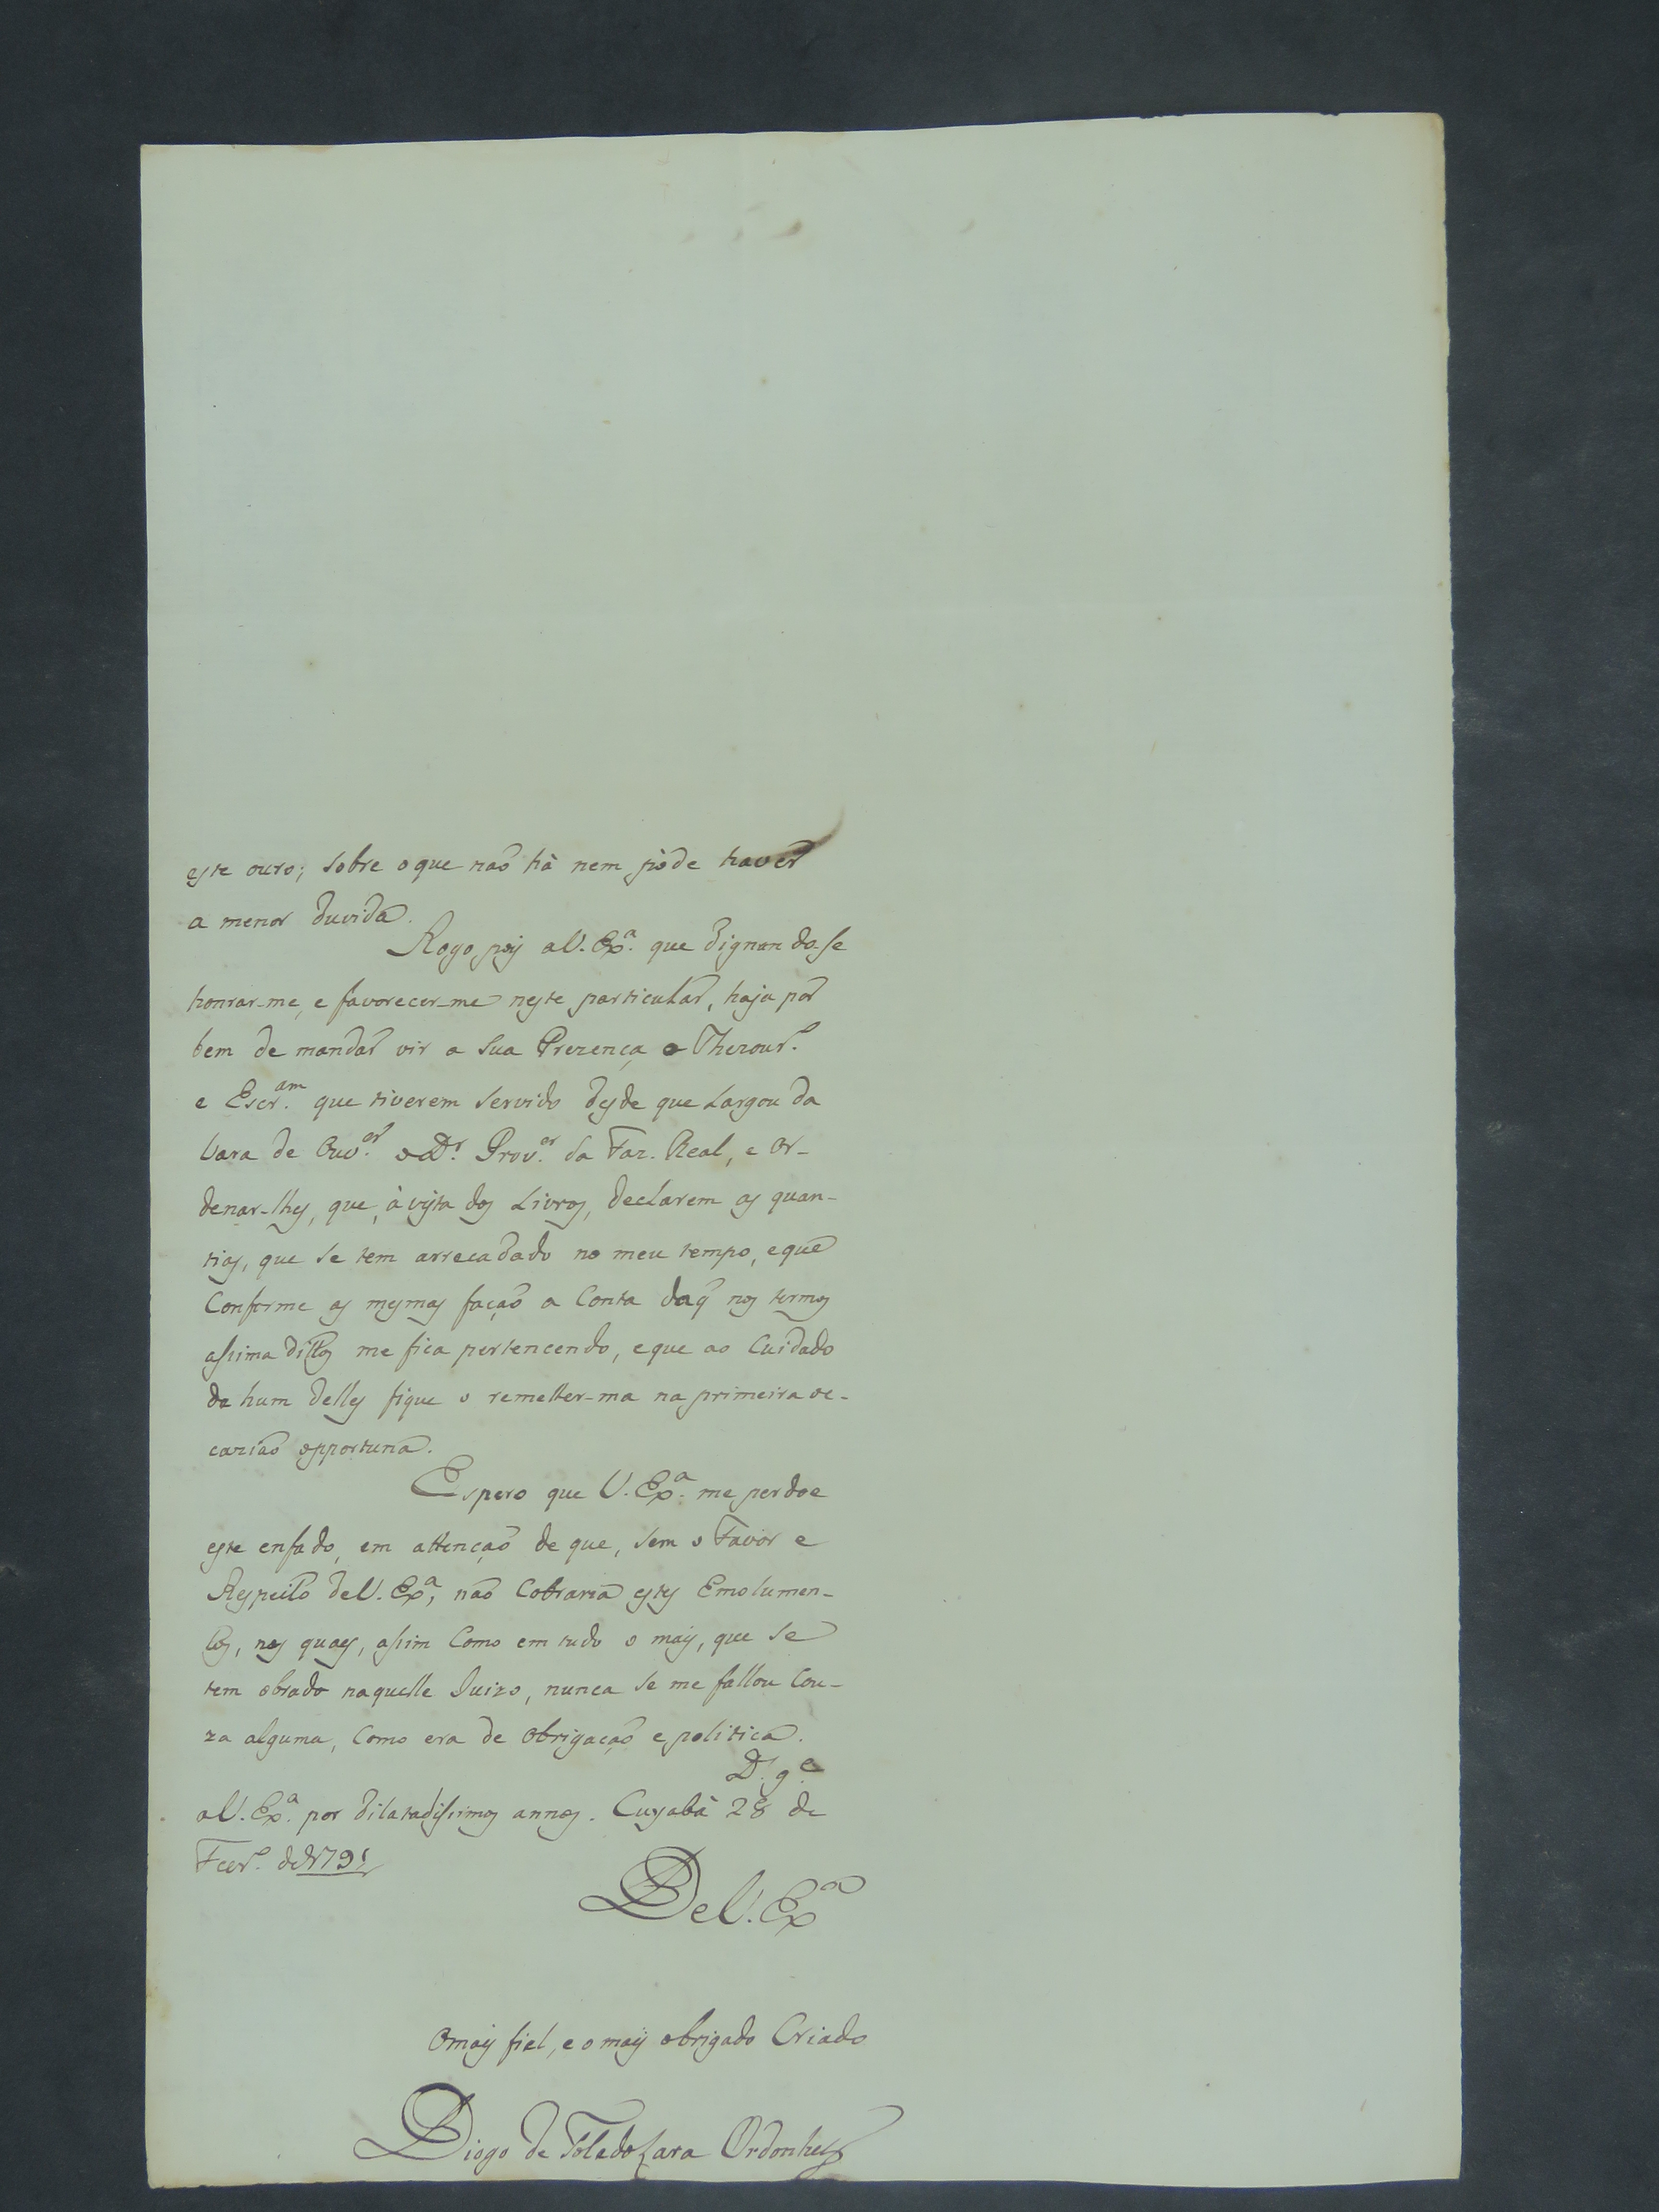 este ouro; sobre oque naõ hà nem pòde haver
a menor duvida.
Rogo pois aV. Exª. que dignando-se
honrar-me, e favorecer-me neste particular, haja por
bem de mandar vir a sua Prezença o Thezourº.
e Escr.am que tiverem servido desde que largou da
Vara de Ouv.or o Dr. Prov.or da Faz. Real, e Or-
denar-lhes, que, à vista dos Livros, declarem as quan-
tias, que se tem arrecadado no meu tempo, eque
Conforme as mesmas façaõ a Conta daq̃ nos termos
assima dittos me fica pertencendo, eque ao Cuidado
de hum delles fique o remetter-ma na primeira oc-
caziaõ opportuna.
Espero que V. Exª. me perdoe
este enfado, em attençaõ de que, sem o Favor e
Respeito deV. Exª, naõ Cobraria estes Emolumen-
tos, nos quaes, assim Como em tudo o mais, que se
tem obrado naquelle Juizo, nunca se me fallou Cou-
za alguma, Como era de Obrigaçaõ e politica.
D.s g.e
aV. Exª. por dilatadissimos annos. Cuyabà 28 de
Fevrº. de 1791
DeV. Exª
Omais fiel, e o mais obrigado Criado
Diogo de Toledo Lara Ordonhes